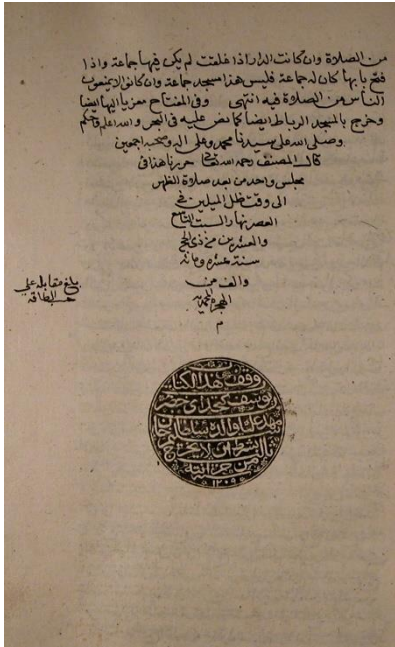 من الصلاة وان كانت الدار اذا غلقت لم يكن فيها جماعة واذا
فتح بابها كان له جماعة فليس هذا مسجد جماعة وان كانوا لا يمنعون
الناس من الصلاة فيه انتهى وفى المفتاح معزيا اليها ايضا
وخرج بالمسجد الرباط ايضا كما نص عليه فى البحر والله اعلم واحكم
وصلى الله على سيدنا محمد وعلى اله وصحبه اجمعين
قال المصنف رحمه الله تعالى حررناها فى
مجلس واحد من بعد صلاة الظهر
الى وقت ظل الميلين فى
العصر نهار السبت التاسع
والعشرين من ذى الحج
سنة عشره ومائة
والف من
الهجرة المحمديه
م
بلغ مقابلة على
حسب الطاقة
وقف هذا الكتاب
يوسف كتخداى
والده سلطان
بالشرط ان لا يخرج
من خزانته
١٢٠٩